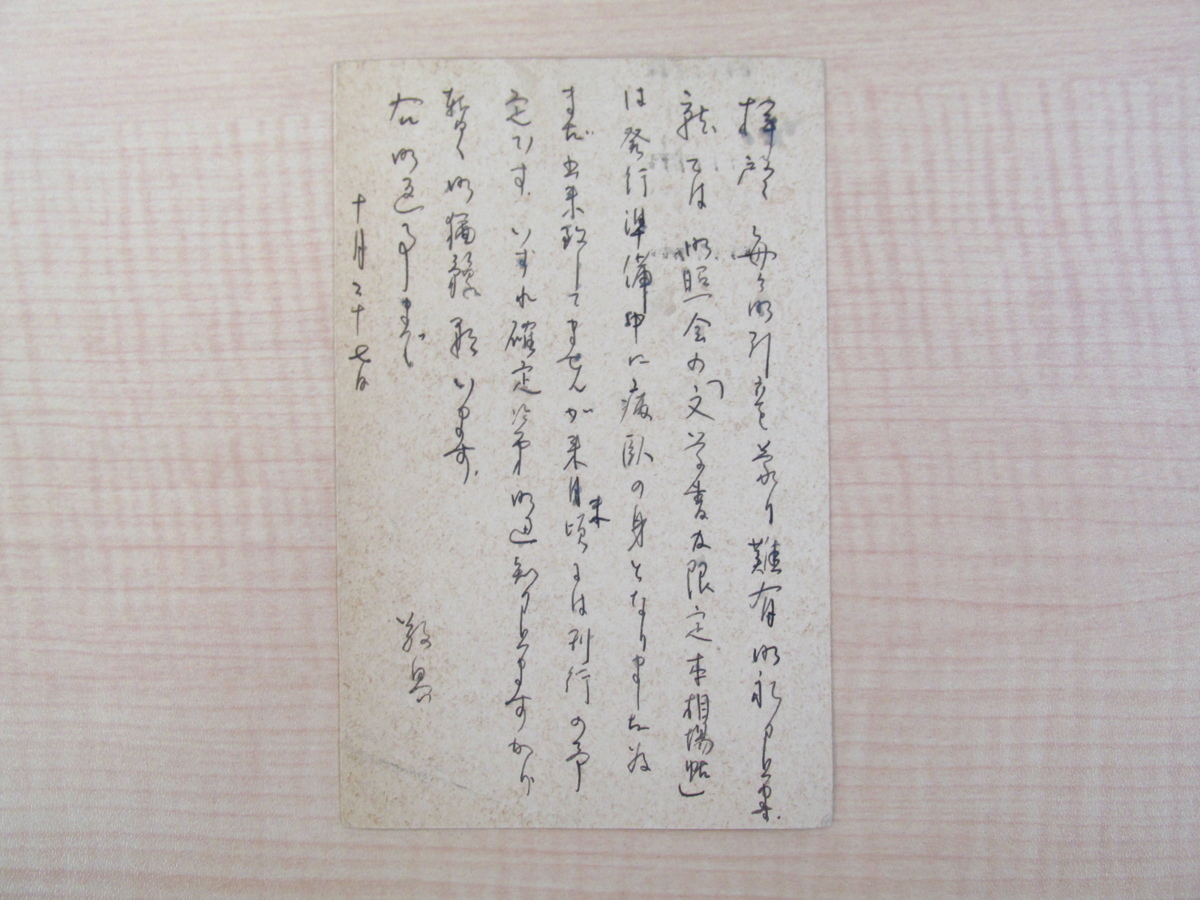 拝啓 毎々御引立を蒙り難有御礼申上ます。
就ては御照会の「文学書及限定本相場帖」
は発行準備中に病臥の身となりました為
まだ出来致してませんが来月末頃には刊行の予
定です。いずれ確定次第御通知申上ますから
暫く御猶予願います。
右御返事まで
敬具
十月二十七日